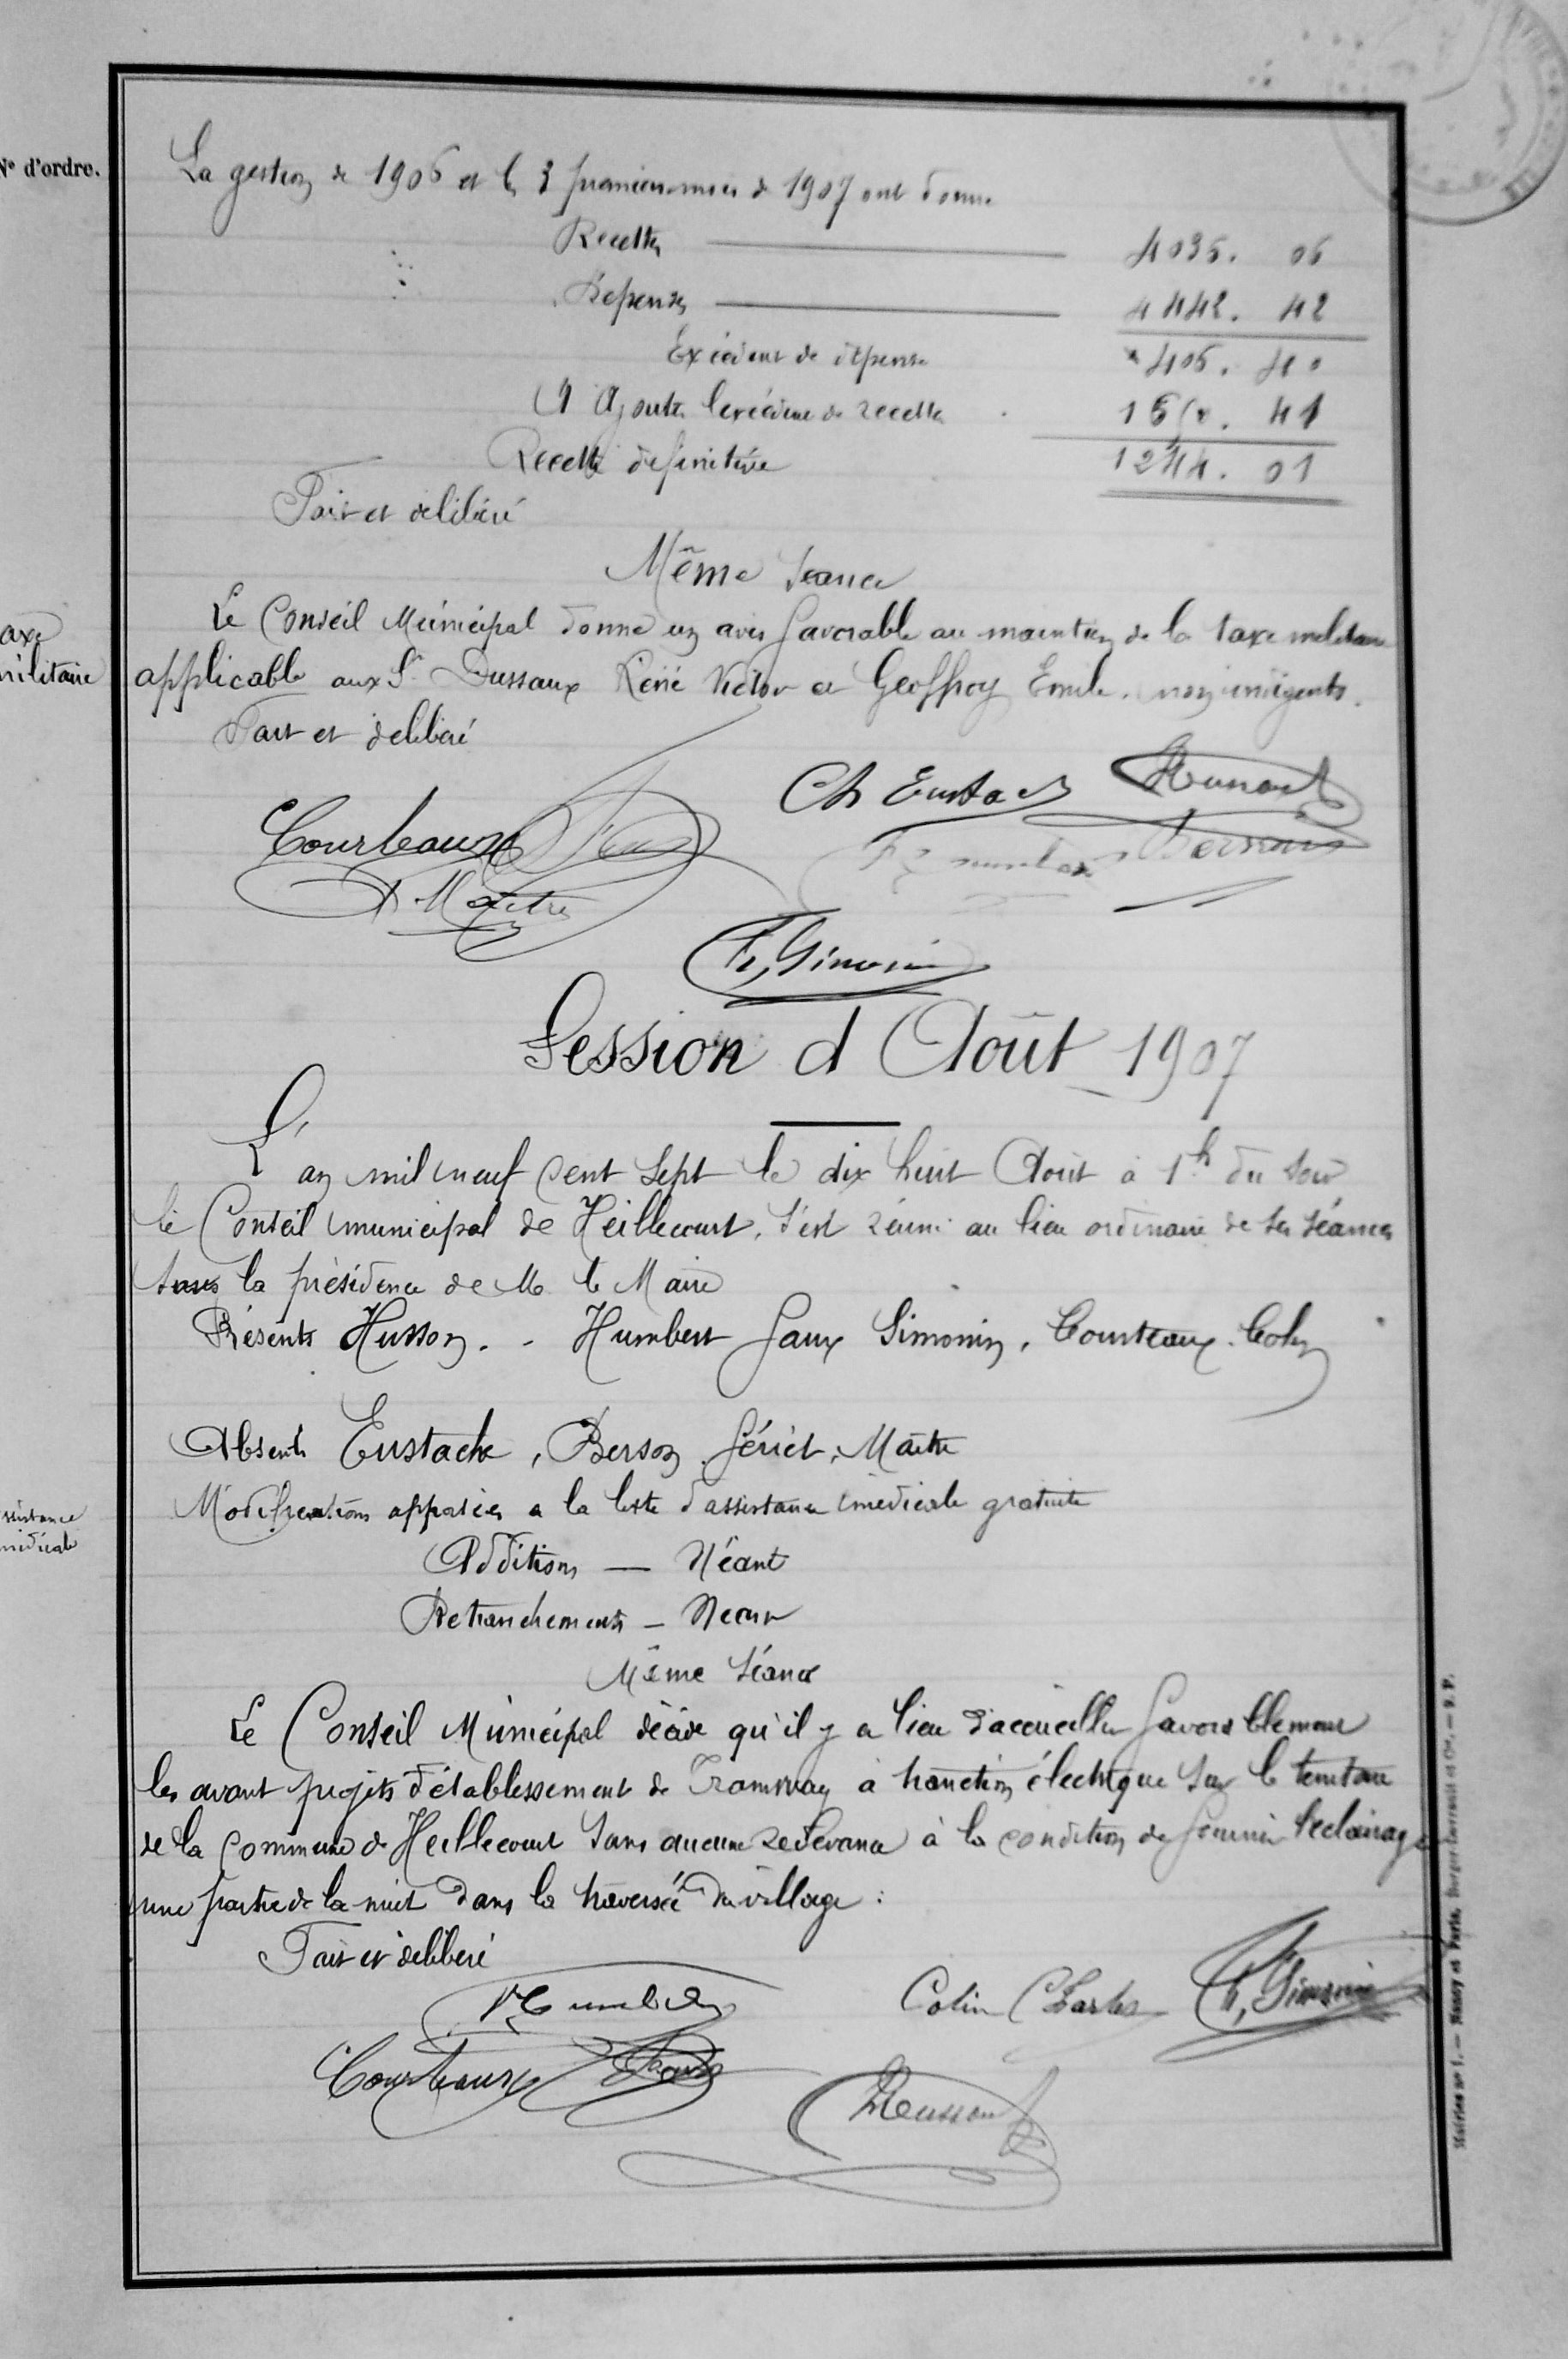 N° d'ordre.
La gestion de 1906 et les 3 premiers mois de 1907 ont donné
Recettes 4036. 06
Dépenses 4442. 42
Excédent de dépense 406. 40
A Ajouter l'excédent de recette 41
Recette définitive 1244. 01
Fait et délibéré
Même séance
axe
militaire
Le Conseil Municipal donne un avis favorable au maintien de la taxe militaire
applicable aux Sr Dussaux René Victor et Geoffroy Emile. non indigents.
Fait et délibéré
Ch Eustache
Courteaux
Maitre
Simonin
Session d Août 1907
L'an mil neuf cent sept le dix huit Août à 1h du soir
le Conseil municipal de Heillecourt, s'est réuni au lieu ordinaire de ses séances
sous la présidence de M. le Maire
Présents Husson. - Humbert Faux Simonin, Courteaux. Colin
Absents Eustache, Berson, Fériet, Maitre
ssistance
médicale
Modifications apposées a la liste d'assistance médicale gratuite
Additions — Néant
Retranchements — Néant
Même Séance
Le Conseil Municipal décide qu'il y a lieu d'accueillir favorablement
les avant projets d'établissement de Tramway à tranction électrique sur le territoire
de la commune de Heillecourt sans aucune redevance à la condition de fournir l'éclairage
une partie de la nuit dans la traversée du village :
Fait et délibéré
Humbert
Colin Charles
Simonin
Courteaux
Faux
Husson
Mairies n° 1. — Nancy et Paris, Berger-Levrault et Cie. — S. P.